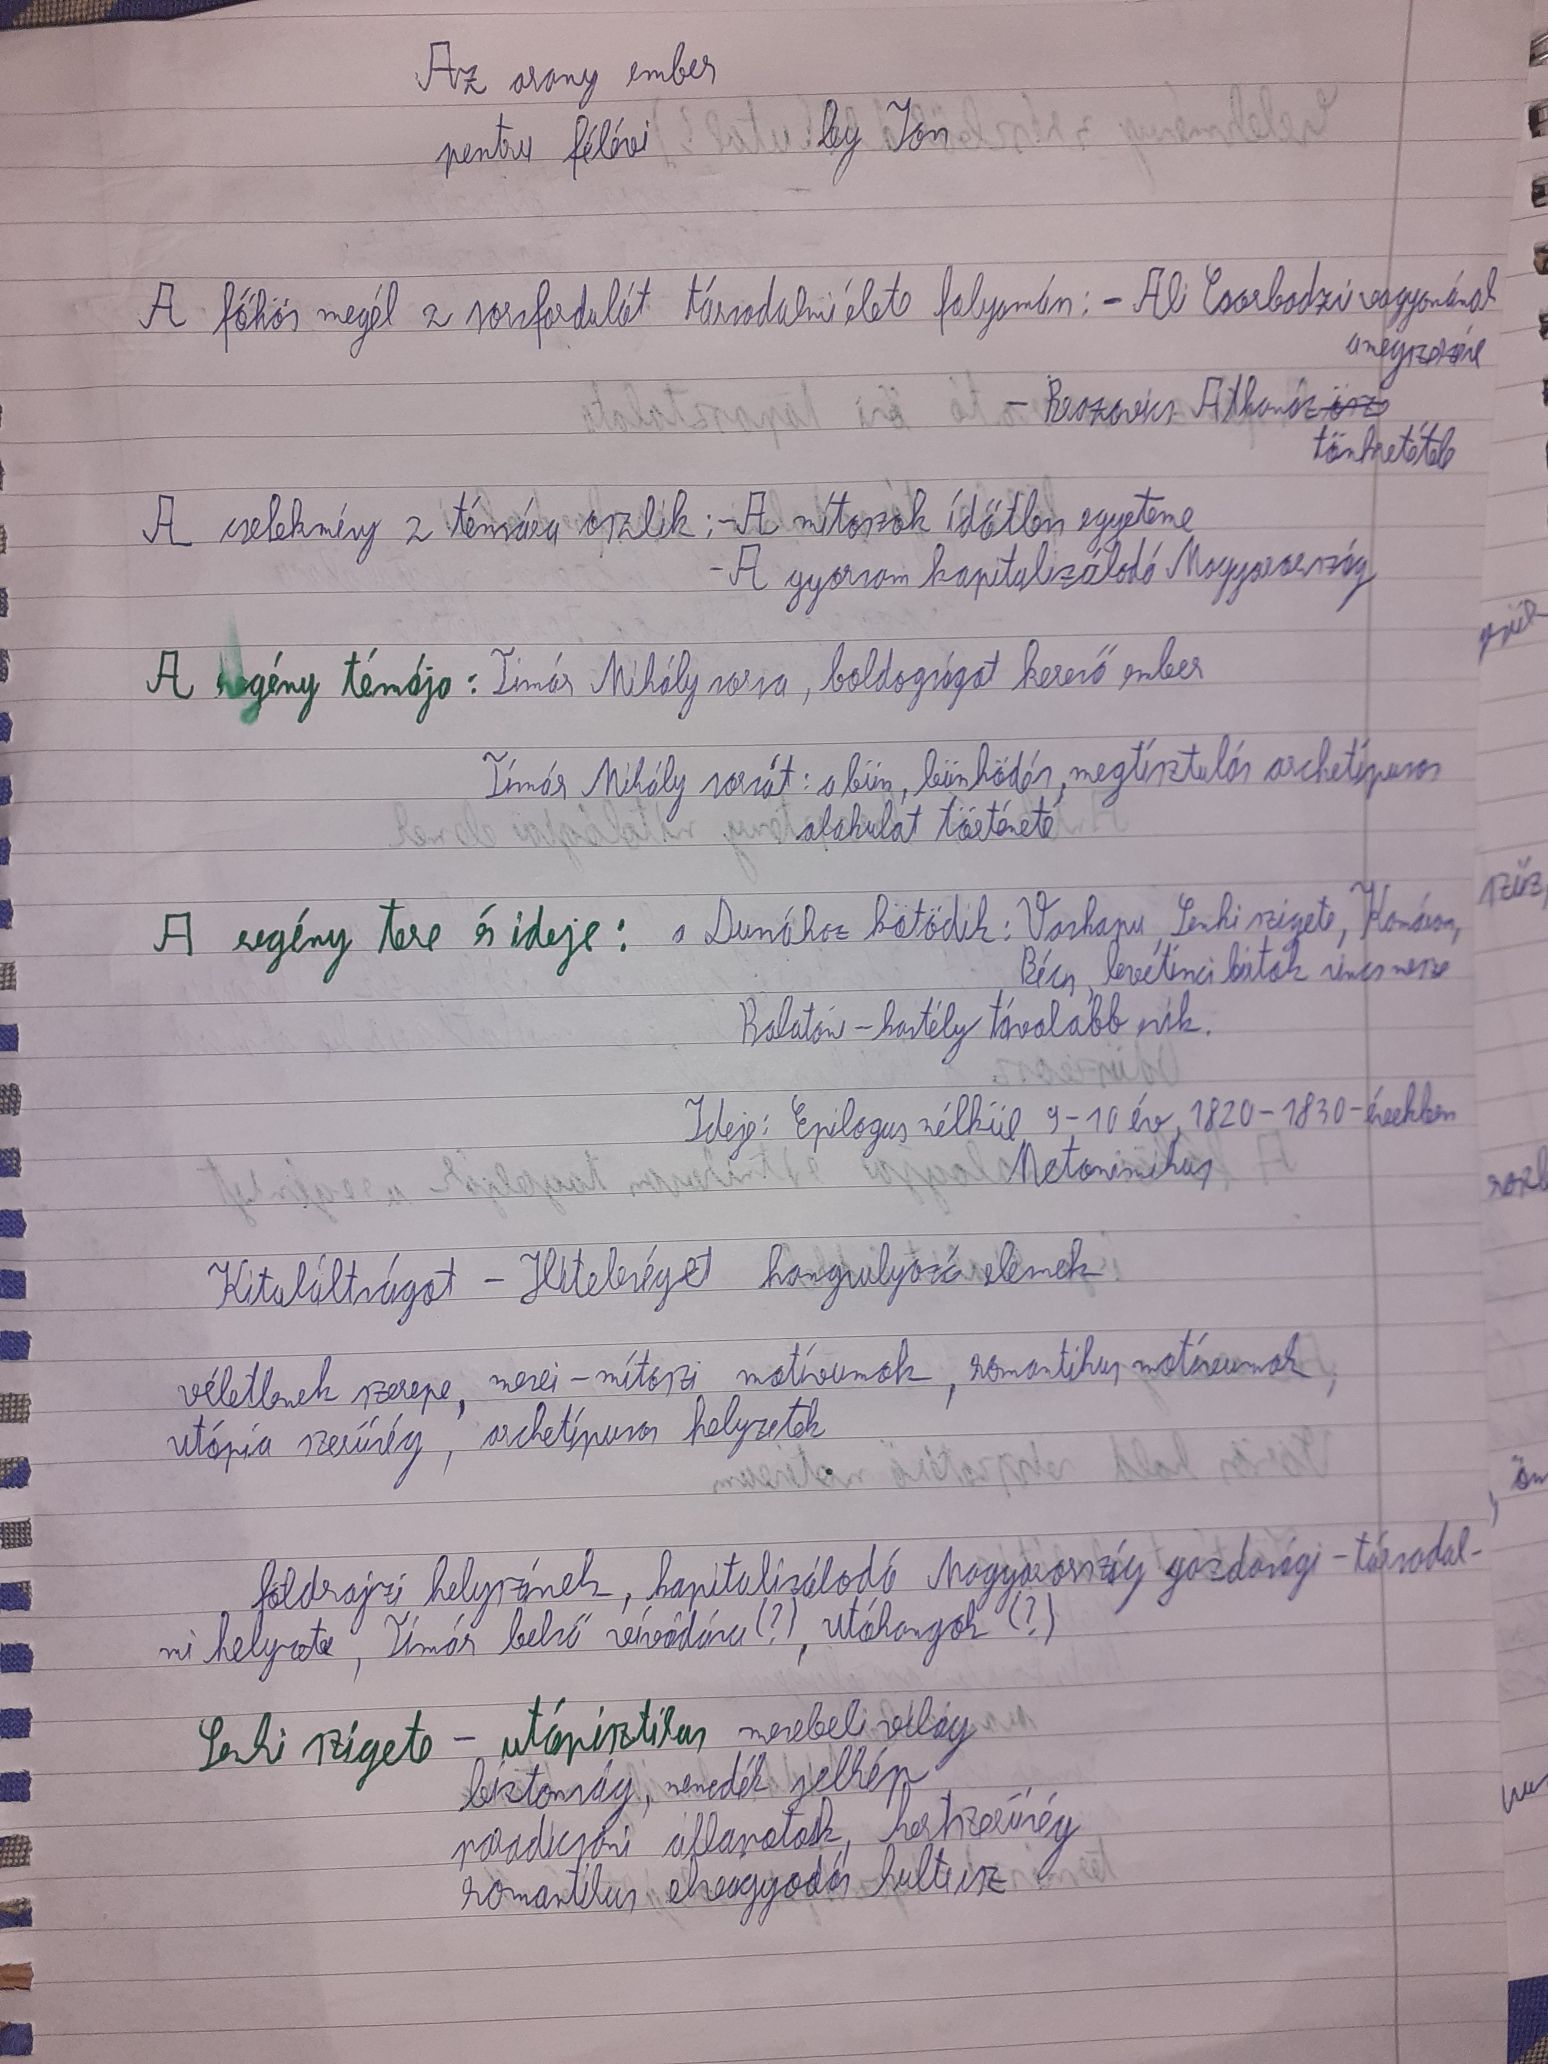 Az arany ember
pentru félévi by Ion
A főhős megél 2 sorsfordulát társadalmi élete folyamán: - Ali Csorbadzsi vagyonának
megszerzése
- Brazovics Athanáz
tönkretétele
A cselekmény 2 témára oszlik: - A mítoszok időtlen egyeteme
- A gyorsan kapitalizálodó Magyarország
A regény témája: Timár Mihály sorsa, boldogságot kereső ember
Tímár Mihály sorsát: a bűn, bűnhödés, megtisztulás archetípusos
alakulat története
A regény tere és ideje: a Dunához kötödik: Vaskapu, Senki szigete, Komárom,
Bécs, levétinci birtok sincs messze
Balaton - kastély távolabb esik.
Ideje: Epilogus nélkül 9-10 év, 1820-1830-években
Metonimikus
Kitaláltságot - Hitelességet hangsulyozó elemek
véletlenek szerepe, mesei-mítoszi motívumok, romantikus motívumok,
utópia szerűség, archetípusos helyzetek
földrajzi helyszínek, kapitalizálodó Magyarország gazdasági-társadal-
mi helyzete, Tímár belső vívódása (?), utóhangok (?)
Senki szigete - utópisztikus mesebeli világ
biztonság, menedék jelkép
paradicsomi állapotok, kertszerűség
romantikus elvágyodás kultusz